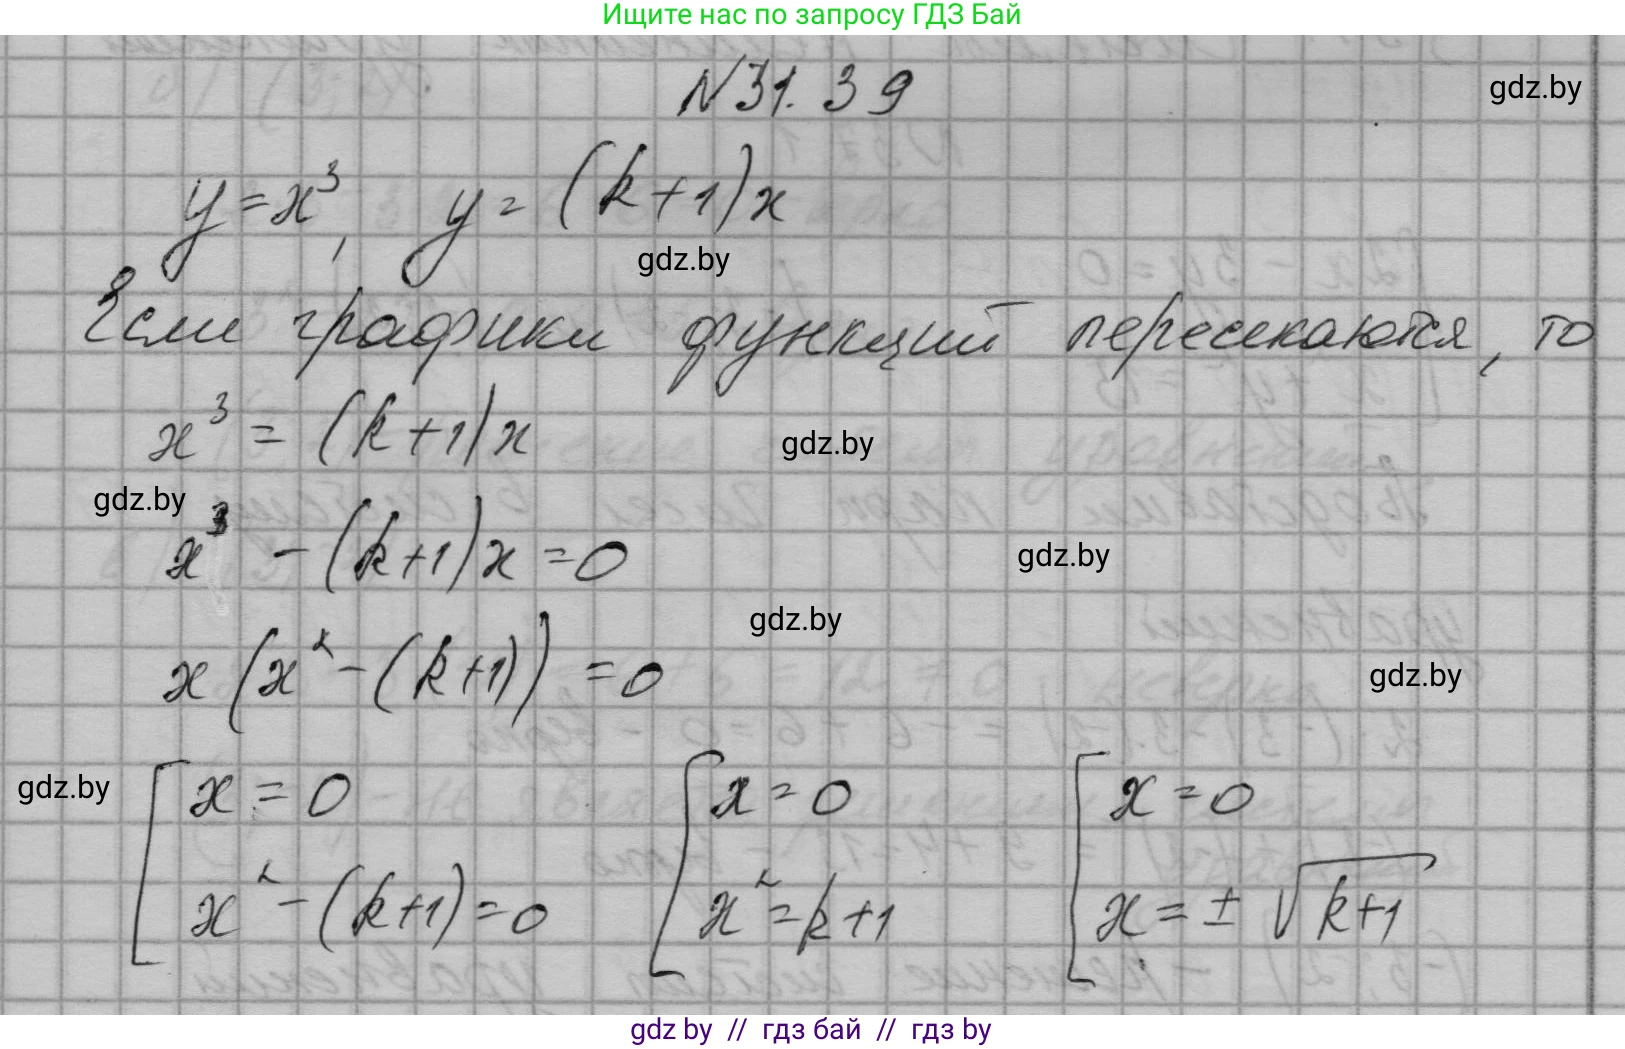 Ищите нас по запросу ГДЗ Бай
N31.39
gdz.by
y=x³, y=(k+1)x
gdz.by
Если графики функций пересекаются, то
x³ = (k+1)x
gdz.by
gdz.by
x³ - (k+1)x = 0
gdz.by
gdz.by
x(x² - (k+1)) = 0
gdz.by
gdz.by
[ x = 0 [ x = 0 [ x = 0
x² - (k+1) = 0 x² = k+1 x = ± √k+1
gdz by // гдз бай // гдз by